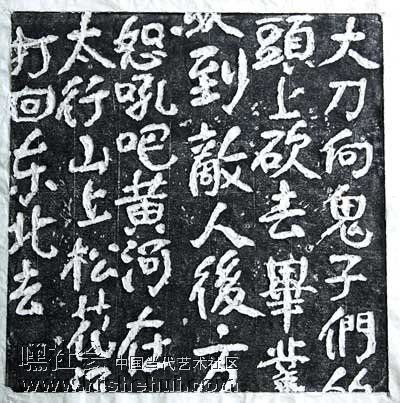 大刀向鬼子們的
頭上砍去畢業
到敵人後方
恕吼吧黄河在
太行山上松花江
打回东北去
嘿社会 中国当代艺术社区
www.heishehui.com